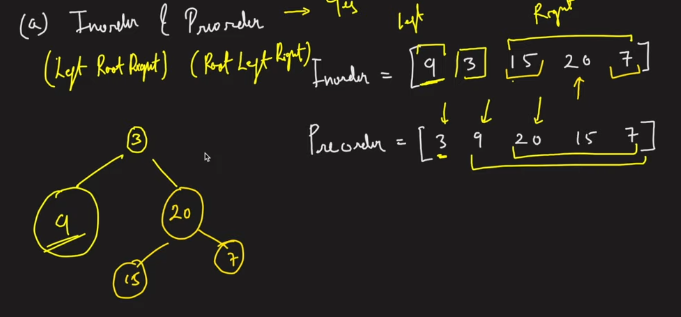 (a) Inorder & Preorder → Yes
Left Right
(Left Root Right) (Root Left Right)
Inorder = [9 3 15 20 7]
Preorder = [3 9 20 15 7]
3
9 20
15 7